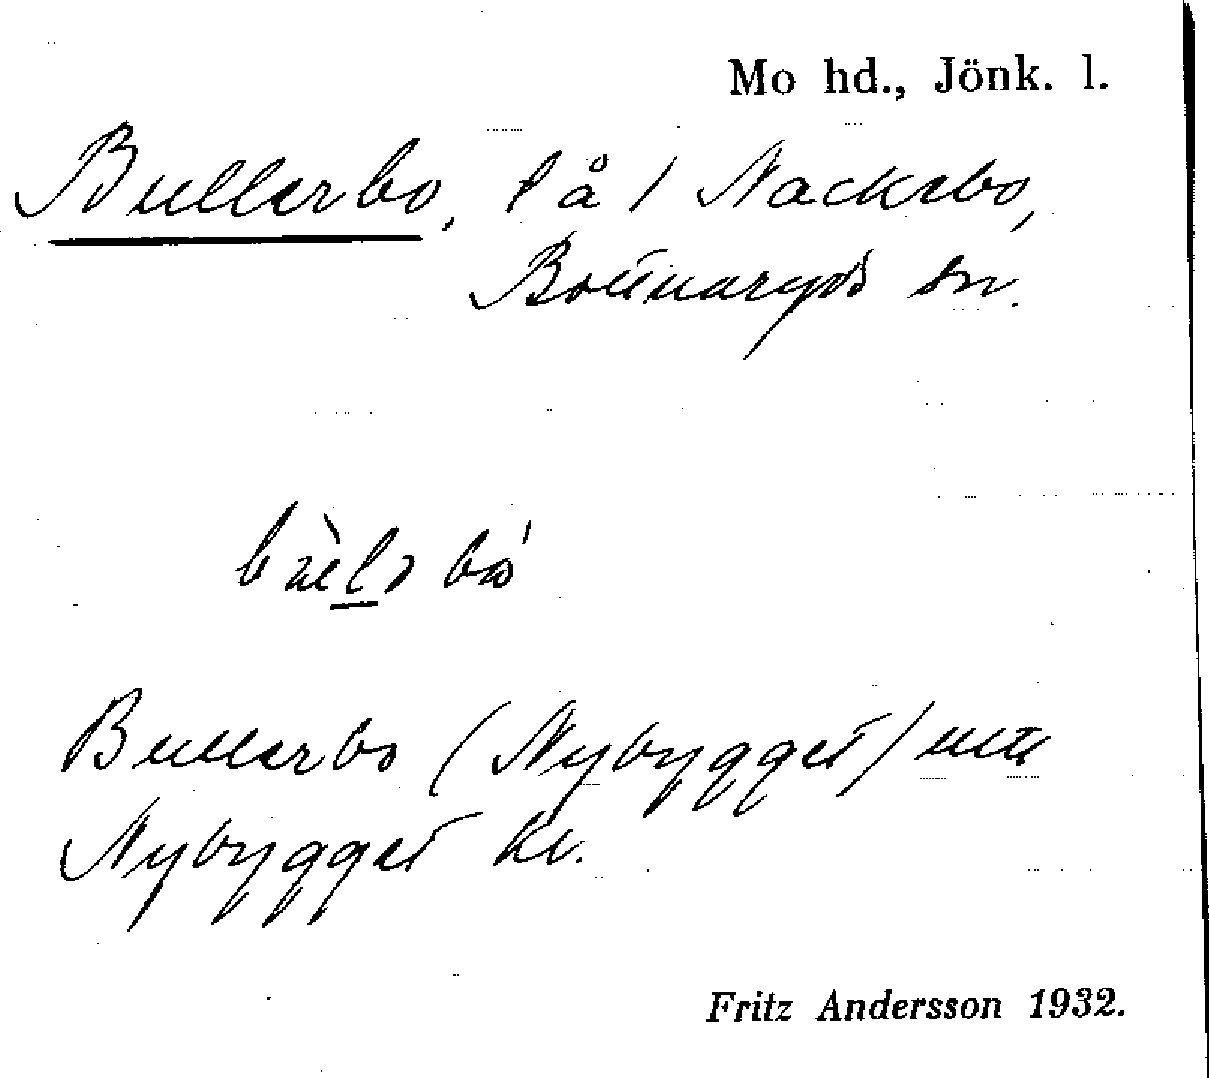 Mo hd., Jönk. l.
Bullerbo, på / Nackebo,
Bottnaryds sn.
Bullerbo (Nybygget)
Nybygget kv.
Fritz Andersson 1932.